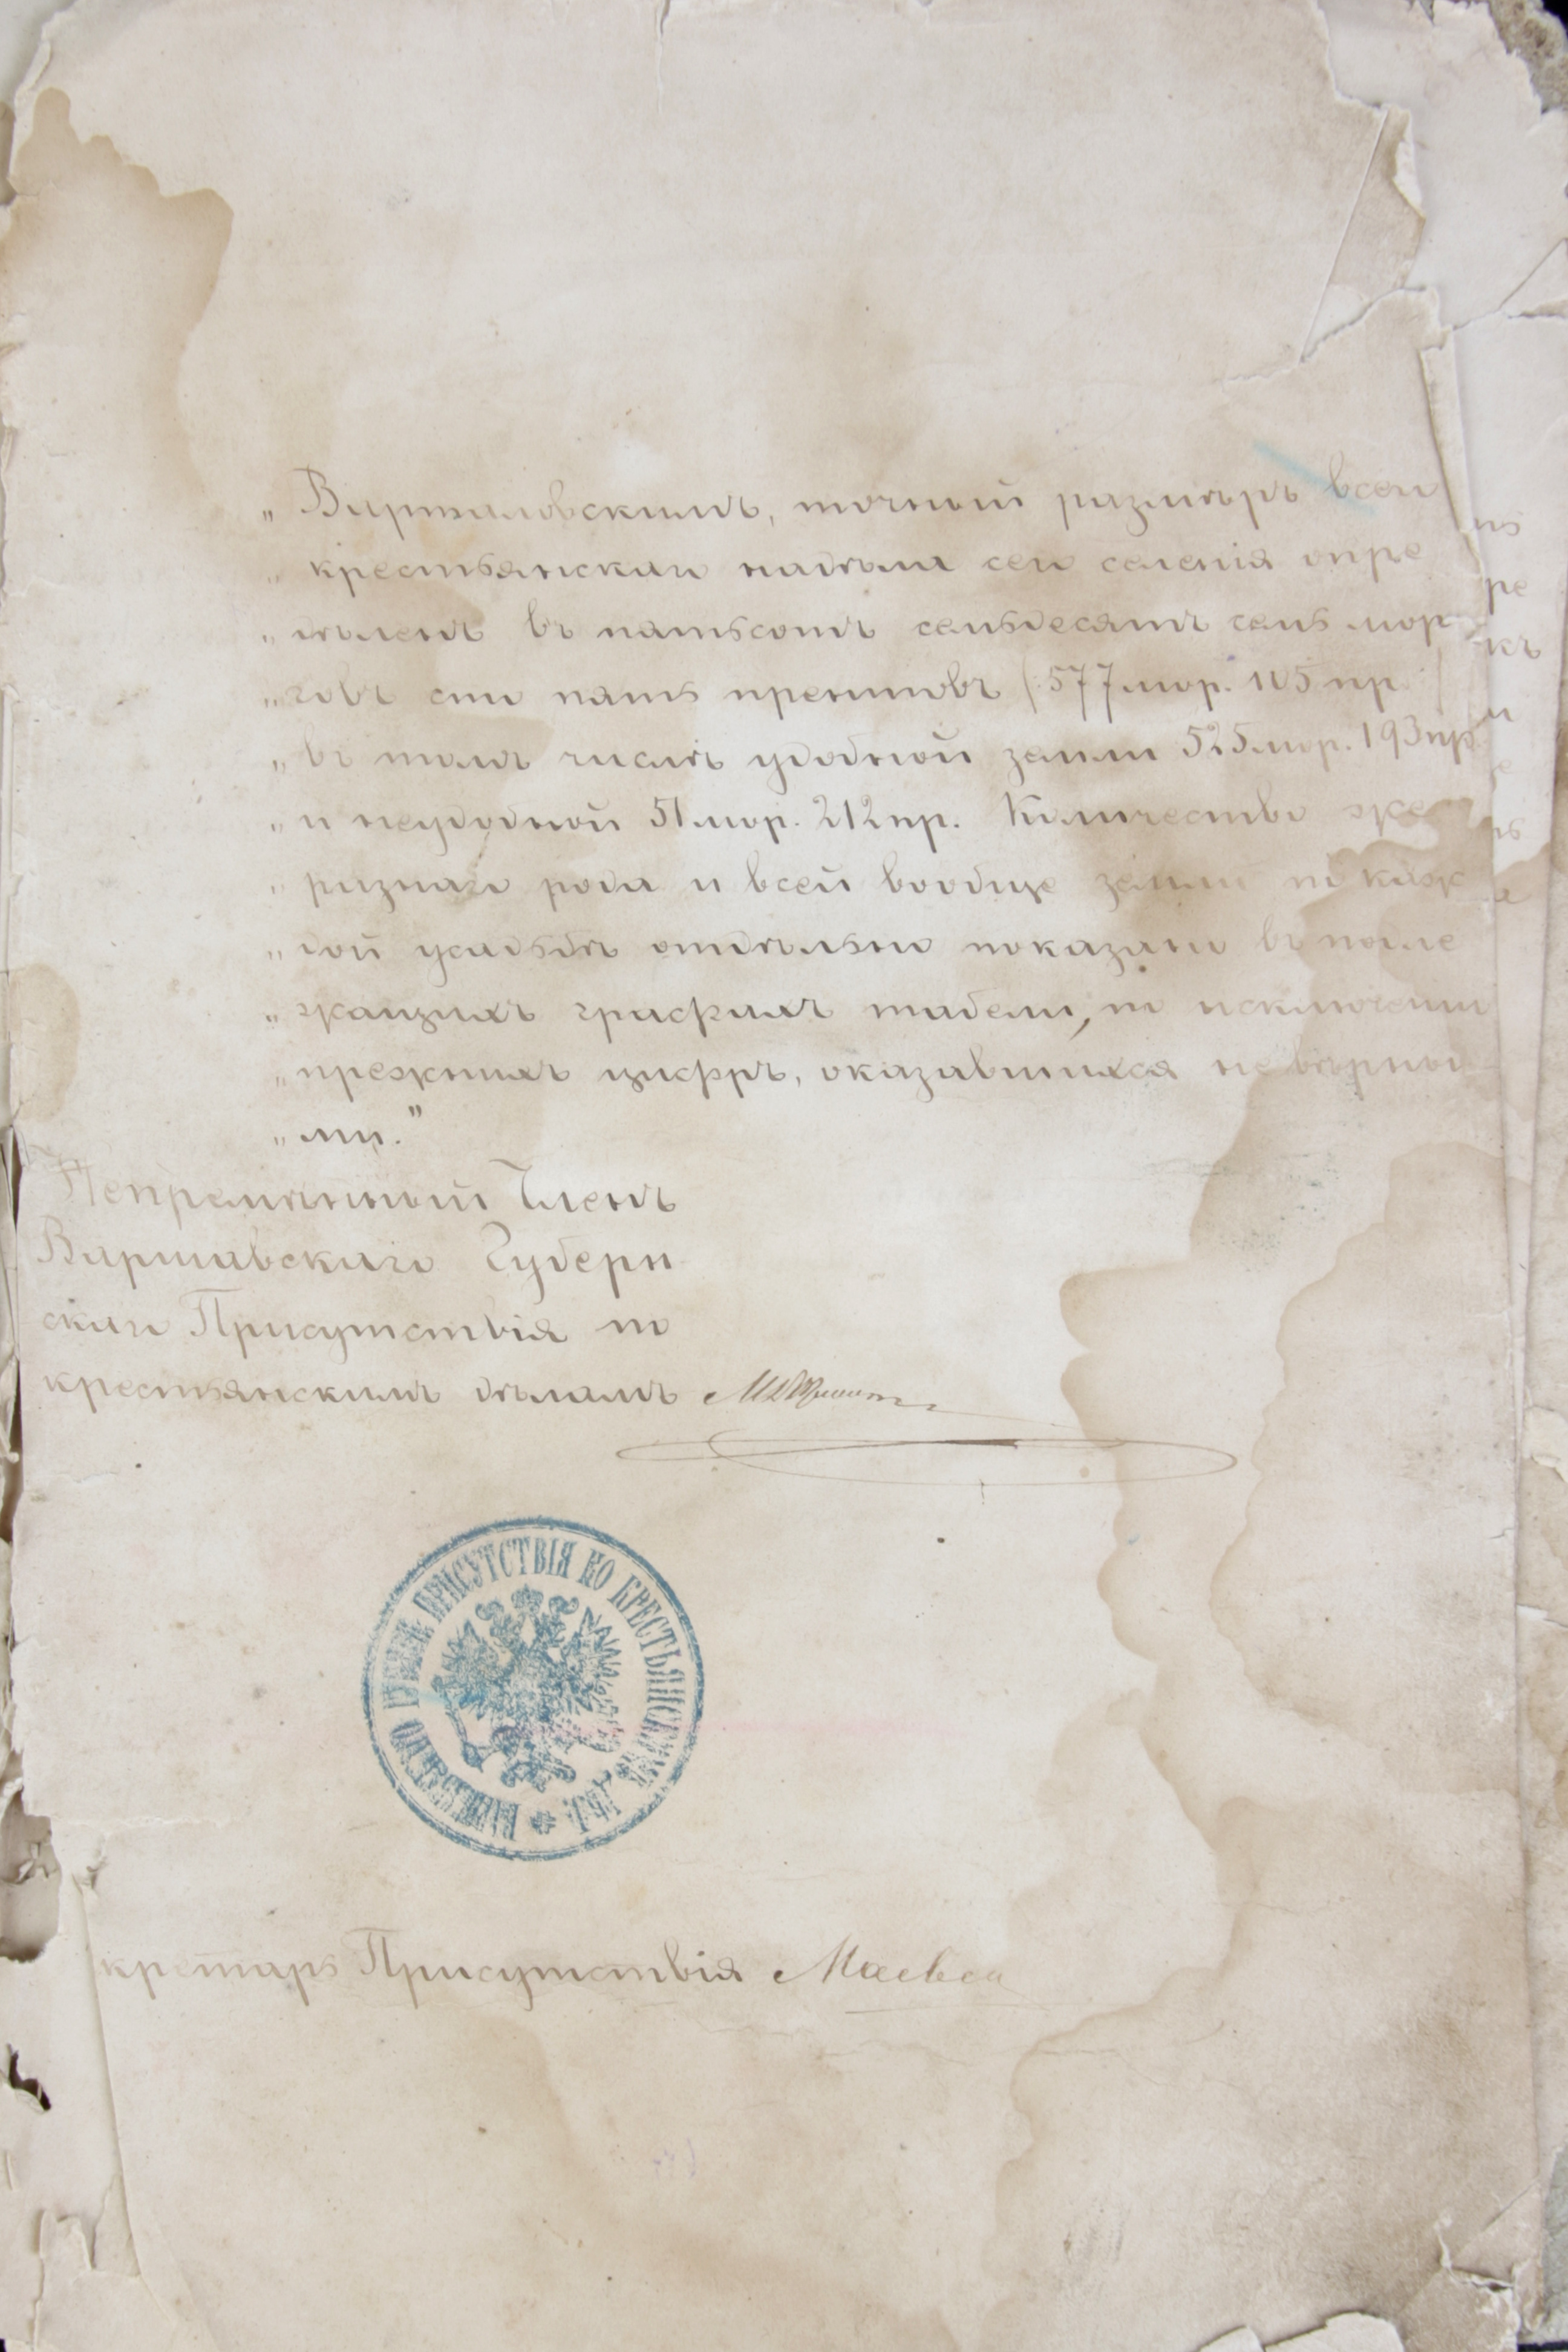 „ точный размѣръ всего
„ крестьянскаго надѣла сего селенія опре
„ дѣленъ въ пятьсотъ семьдесятъ семь мор
„ говъ сто пять прентовъ (577 мор. 105 пр.)
„ въ томъ числѣ удобной земли 525 мор. 193 пр.
„ и неудобной 51 мор. 212 пр. Количество же
„ разнаго рода и всей вообще земли по каж
„ дой усадьбѣ отдѣльно показано въ подле
„ жащихъ графахъ табели, по исключеніи
„ прежнихъ цифръ, оказавшихся невѣрны
„ ми.”
Непремѣнный Членъ
Варшавскаго Губерн
скаго Присутствія по
крестьянскимъ дѣламъ
ПРИСУТСТВІЯ ПО КРЕСТЬЯНСКИМЪ
кретарь Присутствія